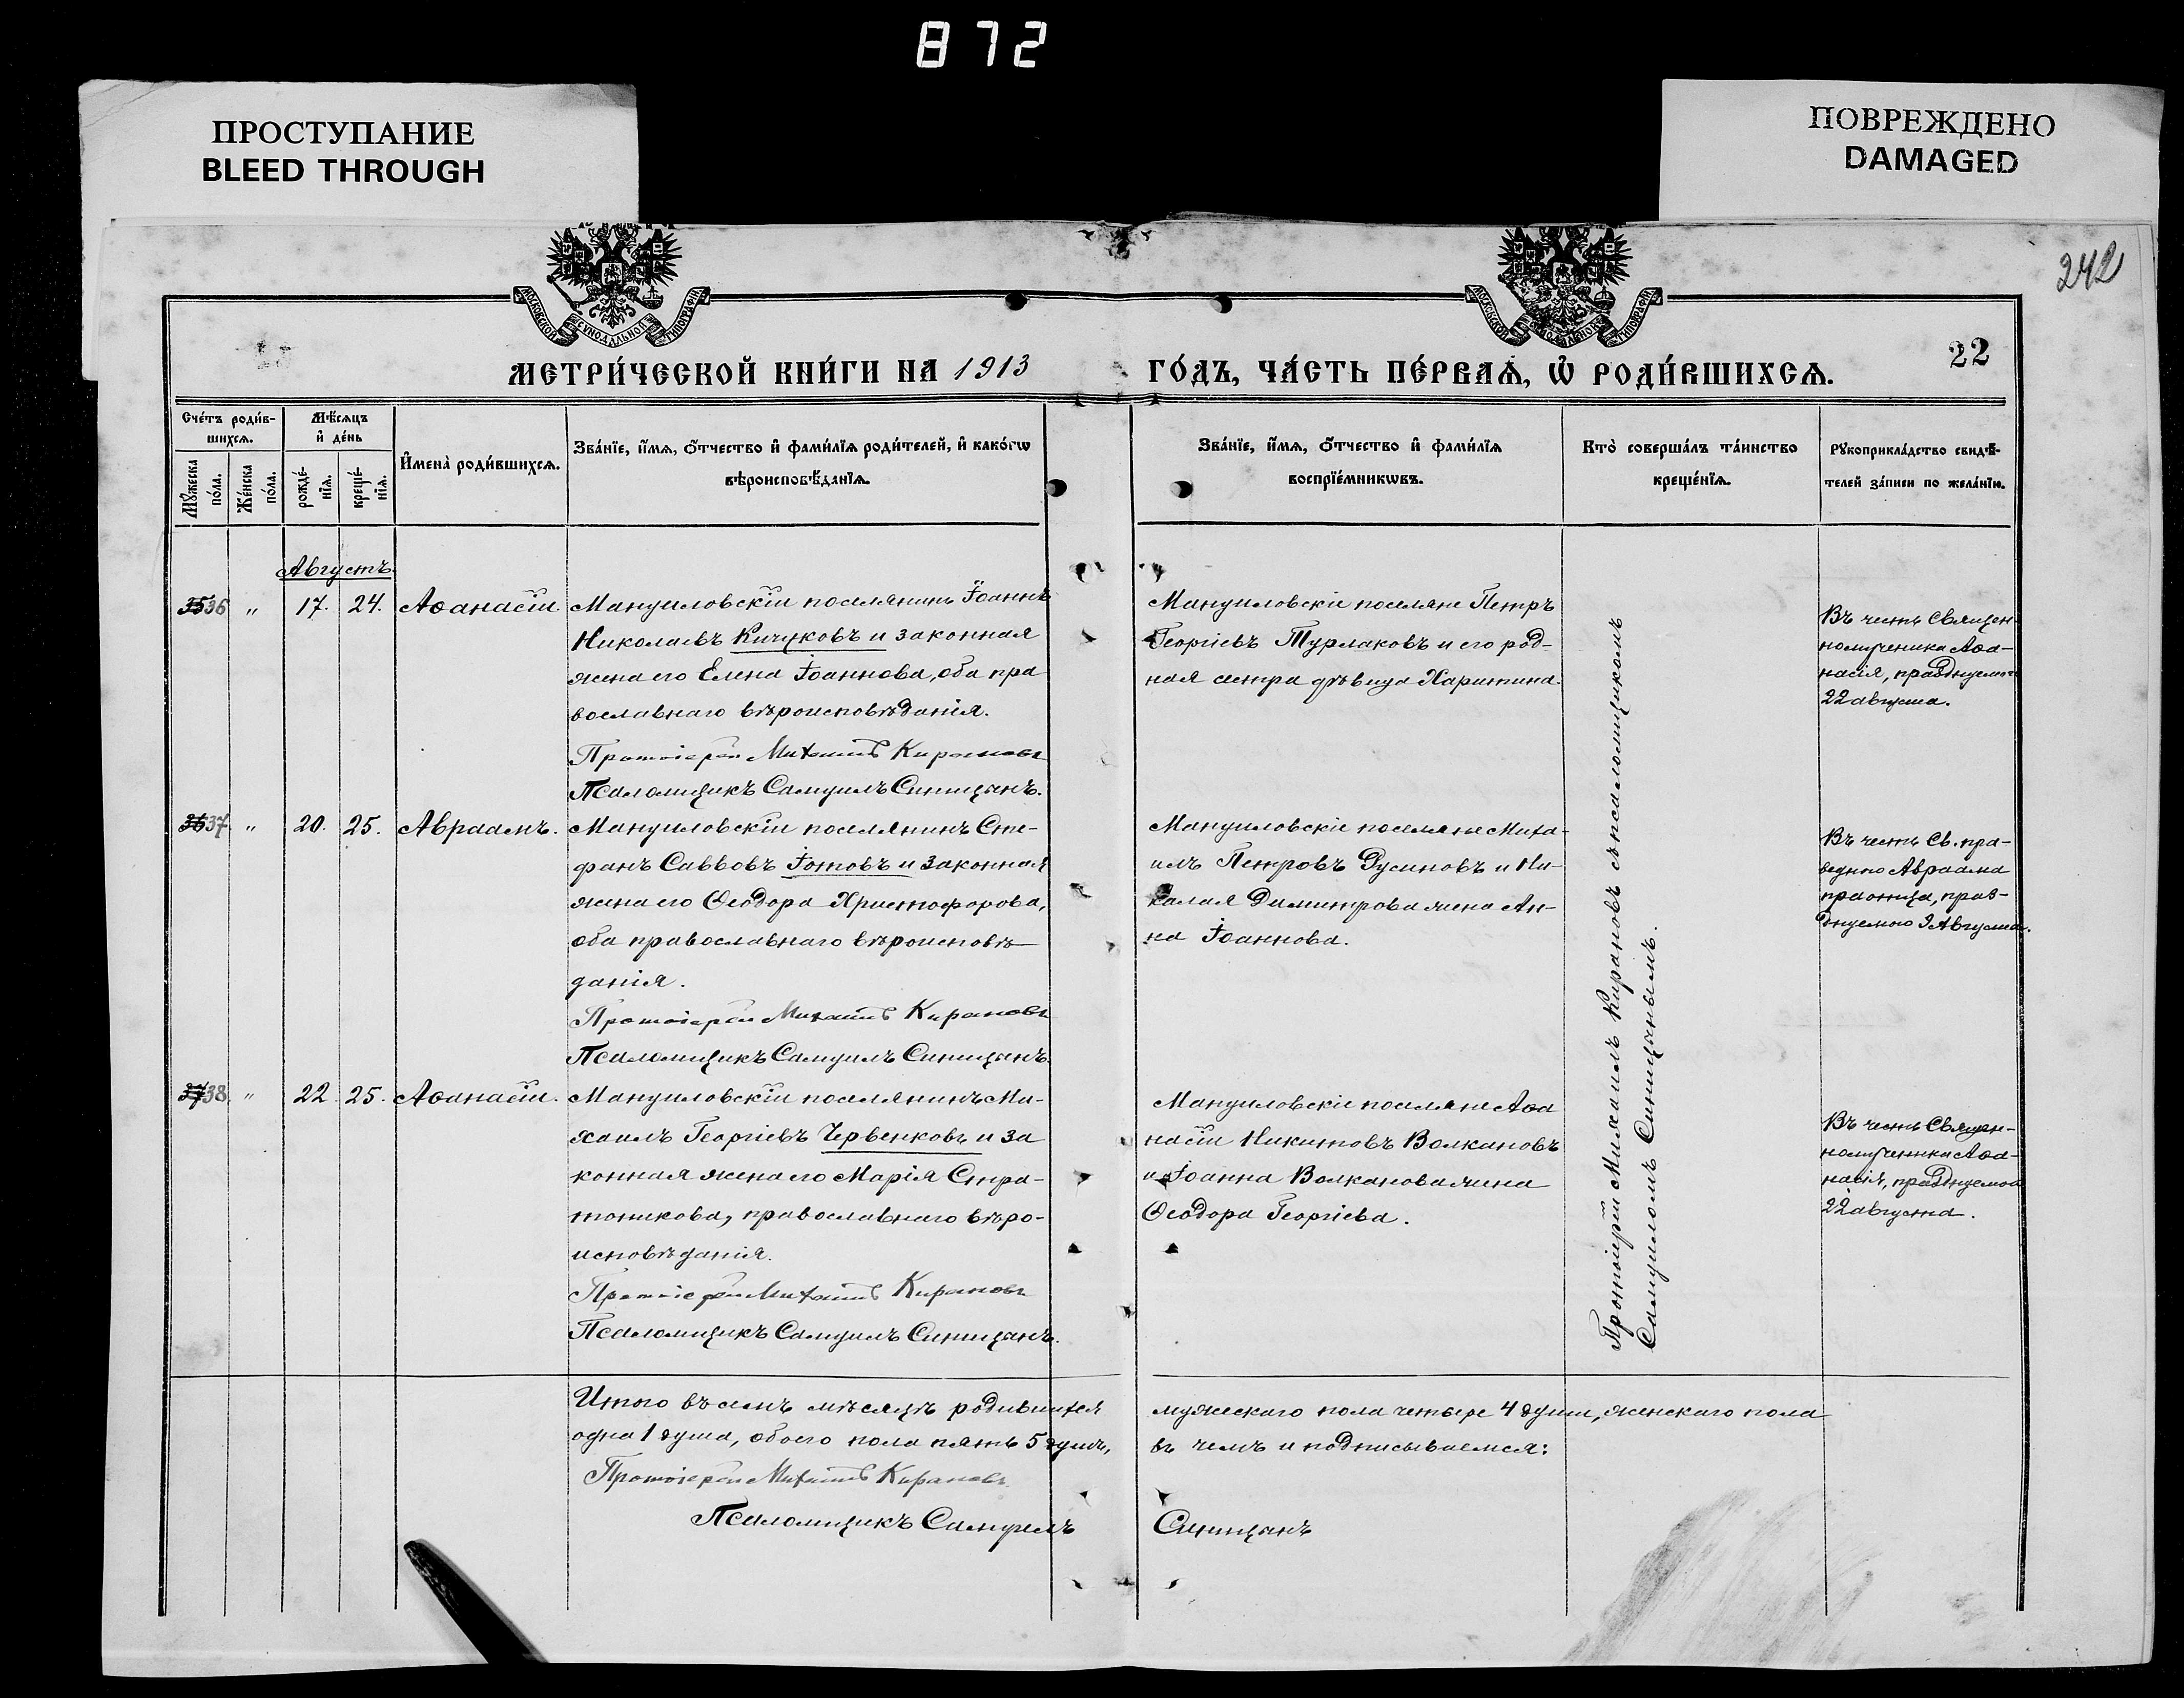 872
ПРОСТУПАНИЕ
BLEED THROUGH
ПОВРЕЖДЕНО
DAMAGED
242
МОСКОВСКОЙ СѴНОДАЛЬНОЙ ТИПОГРАФІИ
МОСКОВСКОЙ СѴНОДАЛЬНОЙ ТИПОГРАФІИ
МЕТРИ́ЧЕСКОЙ КНИ́ГИ НА 1913 ГО́ДЪ, ЧА́СТЬ ПЕ́РВАѦ, Ѽ РОДИ́ВШИХСѦ.
22
Сче́тъ роди́в-
шихсѧ.
Мѣ́сѧцъ
и҆ де́нь
Мꙋ́жеска по́ла.
Же́нска по́ла.
рожде́-
нїѧ.
креще́-
нїѧ.
И҆мена̀ роди́вшихсѧ.
Зва́нїе, и҆́мѧ, ѻ҆́тчество и҆ фами́лїѧ роди́телей, и҆ како́гѡ
вѣроисповѣ́данїѧ.
Зва́нїе, и҆́мѧ, ѻ҆́тчество и҆ фами́лїѧ
воспрїе́мникѡвъ.
Кто̀ соверша́лъ та́инство
креще́нїѧ.
Рꙋкоприкла́дство свидѣ́-
телей за́писи по жела́нїю.
Августъ.
35 36 " 17. 24. Аѳанасій.
Мануиловскій поселянинъ Іоаннъ
Николаевъ Кичуковъ и законная
жена его Елена Іоаннова, оба пра
вославнаго вѣроисповѣданія.
Протоіерей Михаилъ Кирановъ
Псаломщикъ Самуилъ Синицынъ.
Мануиловскіе поселяне Петръ
Георгіевъ Турлаковъ и его род-
ная сестра дѣвица Харитина.
Въ честь Священ
номученика Аѳа-
насія, празднуемаго
22 августа.
36 37 " 20. 25. Авраамъ.
Мануиловскій поселянинъ Сте-
фанъ Саввовъ Іотовъ и законная
жена его Ѳеодора Христофорова,
оба православнаго вѣроисповѣ-
данія.
Протоіерей Михаилъ Кирановъ
Псаломщикъ Самуилъ Синицынъ.
Мануиловскіе поселяне Миха-
илъ Петровъ Русиновъ и Ни-
колая Димитрова жена Ан-
на Іоаннова.
Въ честь Св. пра-
веднаго Авраама
праотца, праз-
днуемаго 9 Августа.
37 38 " 22. 25. Аѳанасій.
Мануиловскій поселянинъ Ми-
хаилъ Георгіевъ Червенковъ и за
конная жена его Марія Стра-
тоникова, православнаго вѣро-
исповѣданія.
Протоіерей Михаилъ Кирановъ
Псаломщикъ Самуилъ Синицынъ.
Мануиловскіе поселяне Аѳа
насій Никитовъ Волкановъ
и Іоанна Волканова жена
Ѳеодора Георгіева.
Въ честь Священ-
номученика Аѳа-
насія, празднуемаго
22 августа.
Протоіерей Михаилъ Кирановъ съ псаломщикомъ
Самуиломъ Синицынымъ.
Итого въ семъ мѣсяцѣ родившихся мужескаго пола четыре 4 души, женскаго пола
одна 1 душа, обоего пола пять 5 душъ, въ чемъ и подписываемся:
Протоіерей Михаилъ Кирановъ
Псаломщикъ Самуилъ Синицынъ